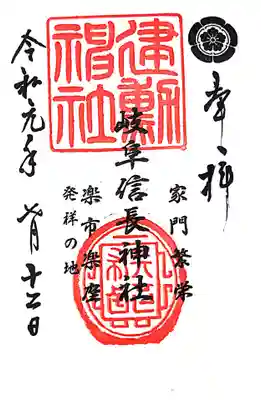 奉拝
家門繁栄
岐阜信長神社
楽市楽座
発祥の地
令和元年 七月十二日
建勲神社